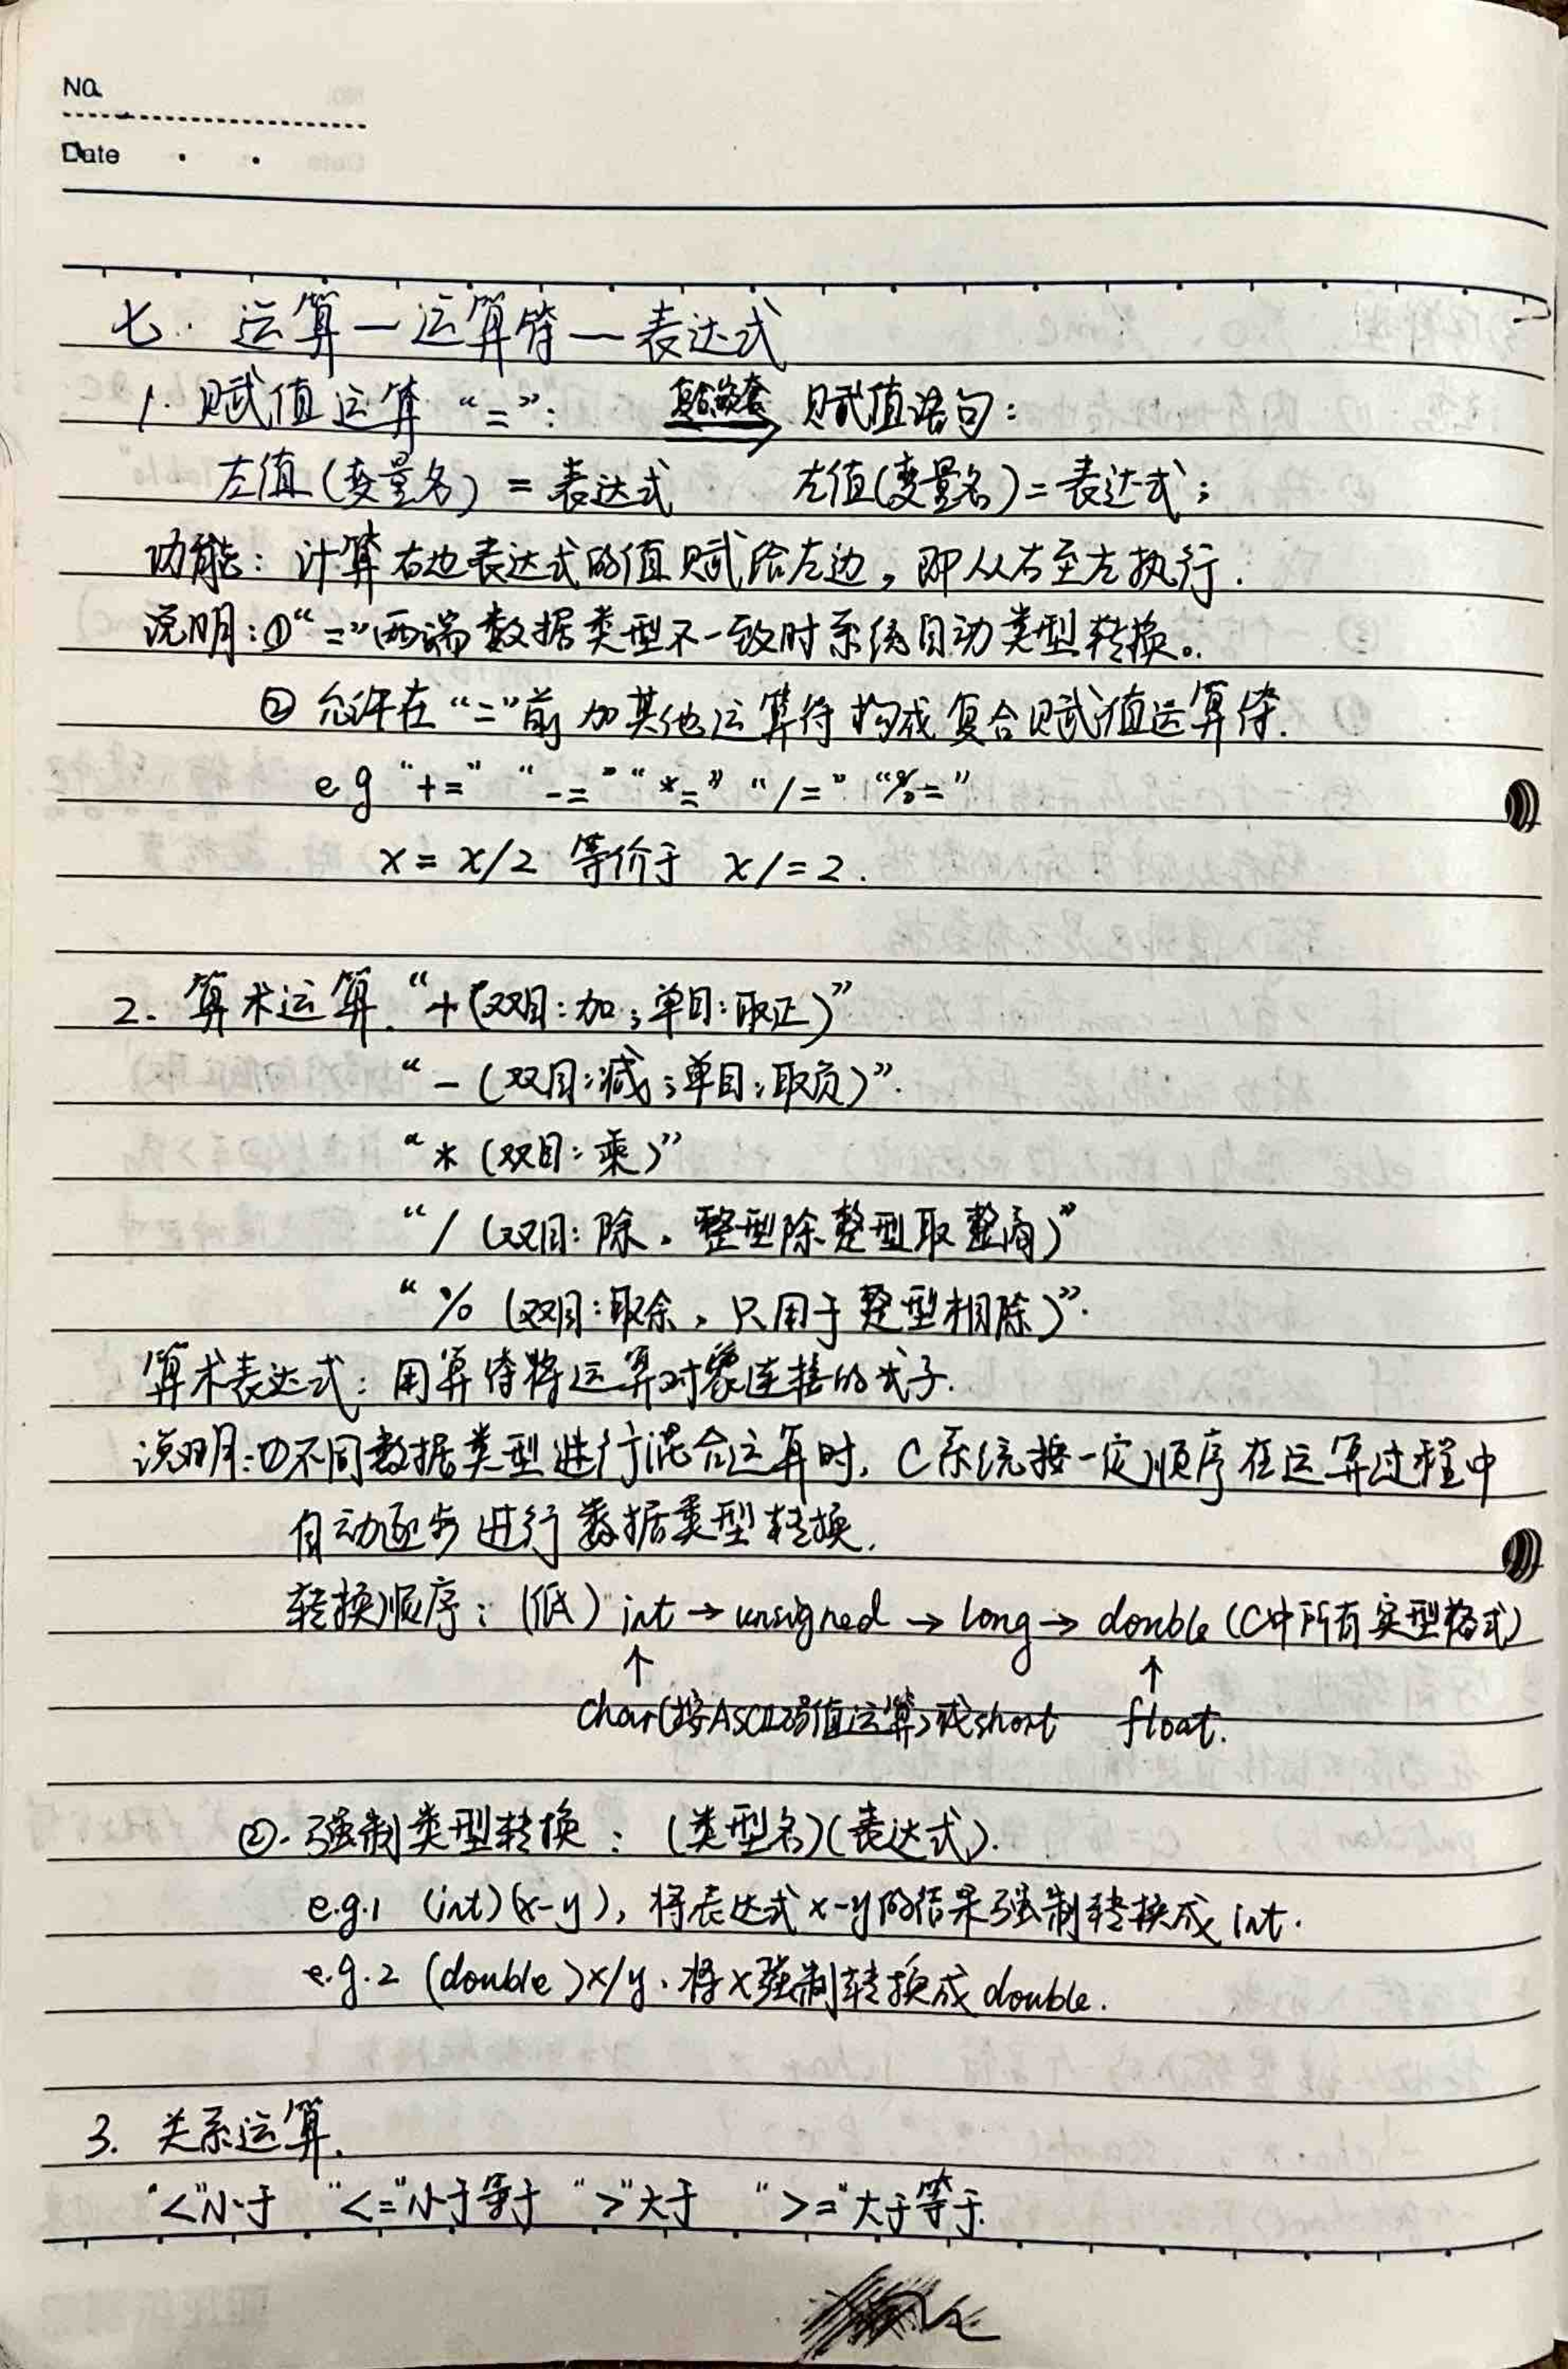 No.
Date
七. 运算—运算符—表达式
1. 赋值运算 “=”: 赋值语句:
左值(变量名) = 表达式 左值(变量名) = 表达式;
功能: 计算右边表达式的值赋给左边, 即从右至左执行.
说明:①“=”两端数据类型不一致时系统自动类型转换.
② 允许在“=”前加其他运算符构成复合赋值运算符.
eg “+=” “-=” “*=” “/=” “%=”
x = x/2 等价于 x/=2.
2. 算术运算. “+(双目:加;单目:取正)”
“-(双目:减;单目:取负)”.
“*(双目:乘)”
“/(双目:除, 整型除整型取整商)”
“%(双目:取余, 只用于整型相除)”.
算术表达式: 用算符将运算对象连接的式子.
说明:①不同数据类型进行混合运算时, C系统按一定顺序在运算过程中
自动逐步进行数据类型转换.
转换顺序: (低) int → unsigned → long → double (C中所有实型格式)
↑ ↑
char(按ASCII码值运算)或short float.
②. 强制类型转换: (类型名)(表达式).
e.g.1 (int)(x-y), 将表达式x-y的结果强制转换成int.
e.g.2 (double)x/y, 将x强制转换成double.
3. 关系运算.
“<”小于 “<=”小于等于 “>”大于 “>=”大于等于.